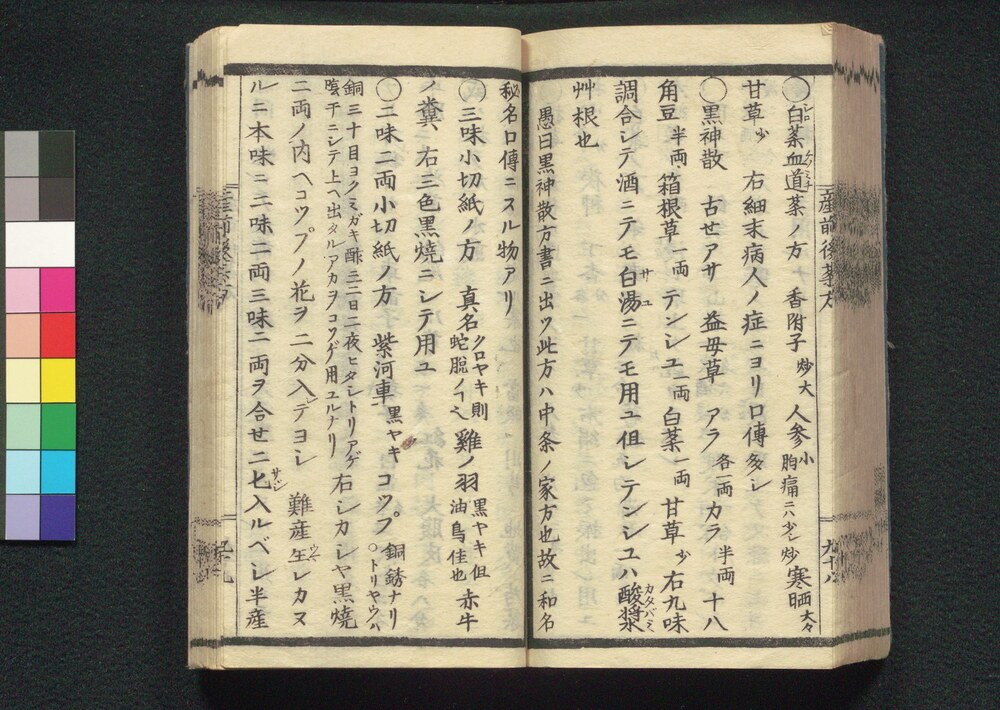 産前後薬方
九十八
〇白薬血道薬ノ方 香附子炒大 人参小 胸痛ニハ少シ炒 寒晒大々
甘草少 右細末病人ノ症ニヨリ口傳多シ
〇黒神散 古せアサ 益母草 アラ各一両 カラ半両 十八
角豆半両 箱根草一両 テンシユ一両 白薬一両 甘草少 右九味
調合シテ酒ニテモ白湯ニテモ用ユ但シテンシユハ酸漿
艸根也
愚曰黒神散方書ニ出ツ此方ハ中条ノ家方也故ニ和名
秘名口傳ニスル物アリ
〇三味小切紙ノ方 真名クロヤキ則蛇脱ノヿ也 雞ノ羽黒ヤキ但油鳥佳也 赤牛
ノ糞 右三色黒焼ニシテ用ユ
〇二味二両小切紙ノ方 紫河車黒ヤキ コツプ銅銹ナリ○トリヤウハ
銅三十目ヨクミガキ酢ニ三日二夜ヒタシトリアゲ
陰干ニシテ上ヘ出タルアカヲコソゲ用ユルナリ 右シカシヤ黒焼
二両ノ内ヘコツプノ花ヲ二分入テヨシ 難産生レカヌ
ルニ本味ニ二味二両三味二両ヲ合セ二匕入ルベシ半産